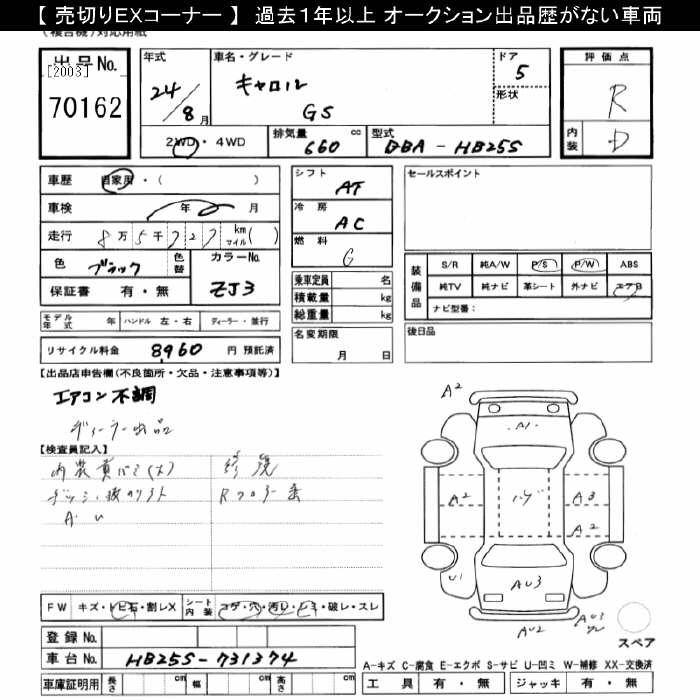 【 売切りEXコーナー 】 過去１年以上 オークション出品歴がない車両
出品No.
[2003]
70162
年式
24/8月
車名・グレード
キャロル
GS
ドア
5
形状
評価点
R
内装
D
2WD・4WD
排気量
660 cc
型式
DBA - HB25S
車歴 自家用・( )
車検 年 月
走行 8万5千727 km マイル( )
色 ブラック
色替
カラーNo.
ZJ3
保証書 有・無
シフト
AT
冷房
AC
燃料
G
乗車定員 名
積載量 kg
総重量 kg
セールスポイント
装備品
S/R 純A/W P/S P/W ABS
純TV 純ナビ 革シート 外ナビ エアB
ナビ型番：
モデル年式 年 ハンドル 左・右 ディーラー・並行
リサイクル料金 8960 円 預託済
名変期限
月 日
後日品
【出品店申告欄(不良箇所・欠品・注意事項等)】
エアコン不調
ディーラー出品
【検査員記入】
修復
A2
A1
A2
A3
A2
U1
AU3
AU2
AU3
スペア
FW キズ・トビ石・割レX
シート内装 コゲ・穴・汚レ・シミ・破レ・スレ
登録No.
車台No. HB25S-731374
A-キズ C-腐食 E-エクボ S-サビ U-凹ミ W-補修 XX-交換済
車庫証明用 長さ cm 幅 cm 高さ cm
工具 有・無 ジャッキ 有・無